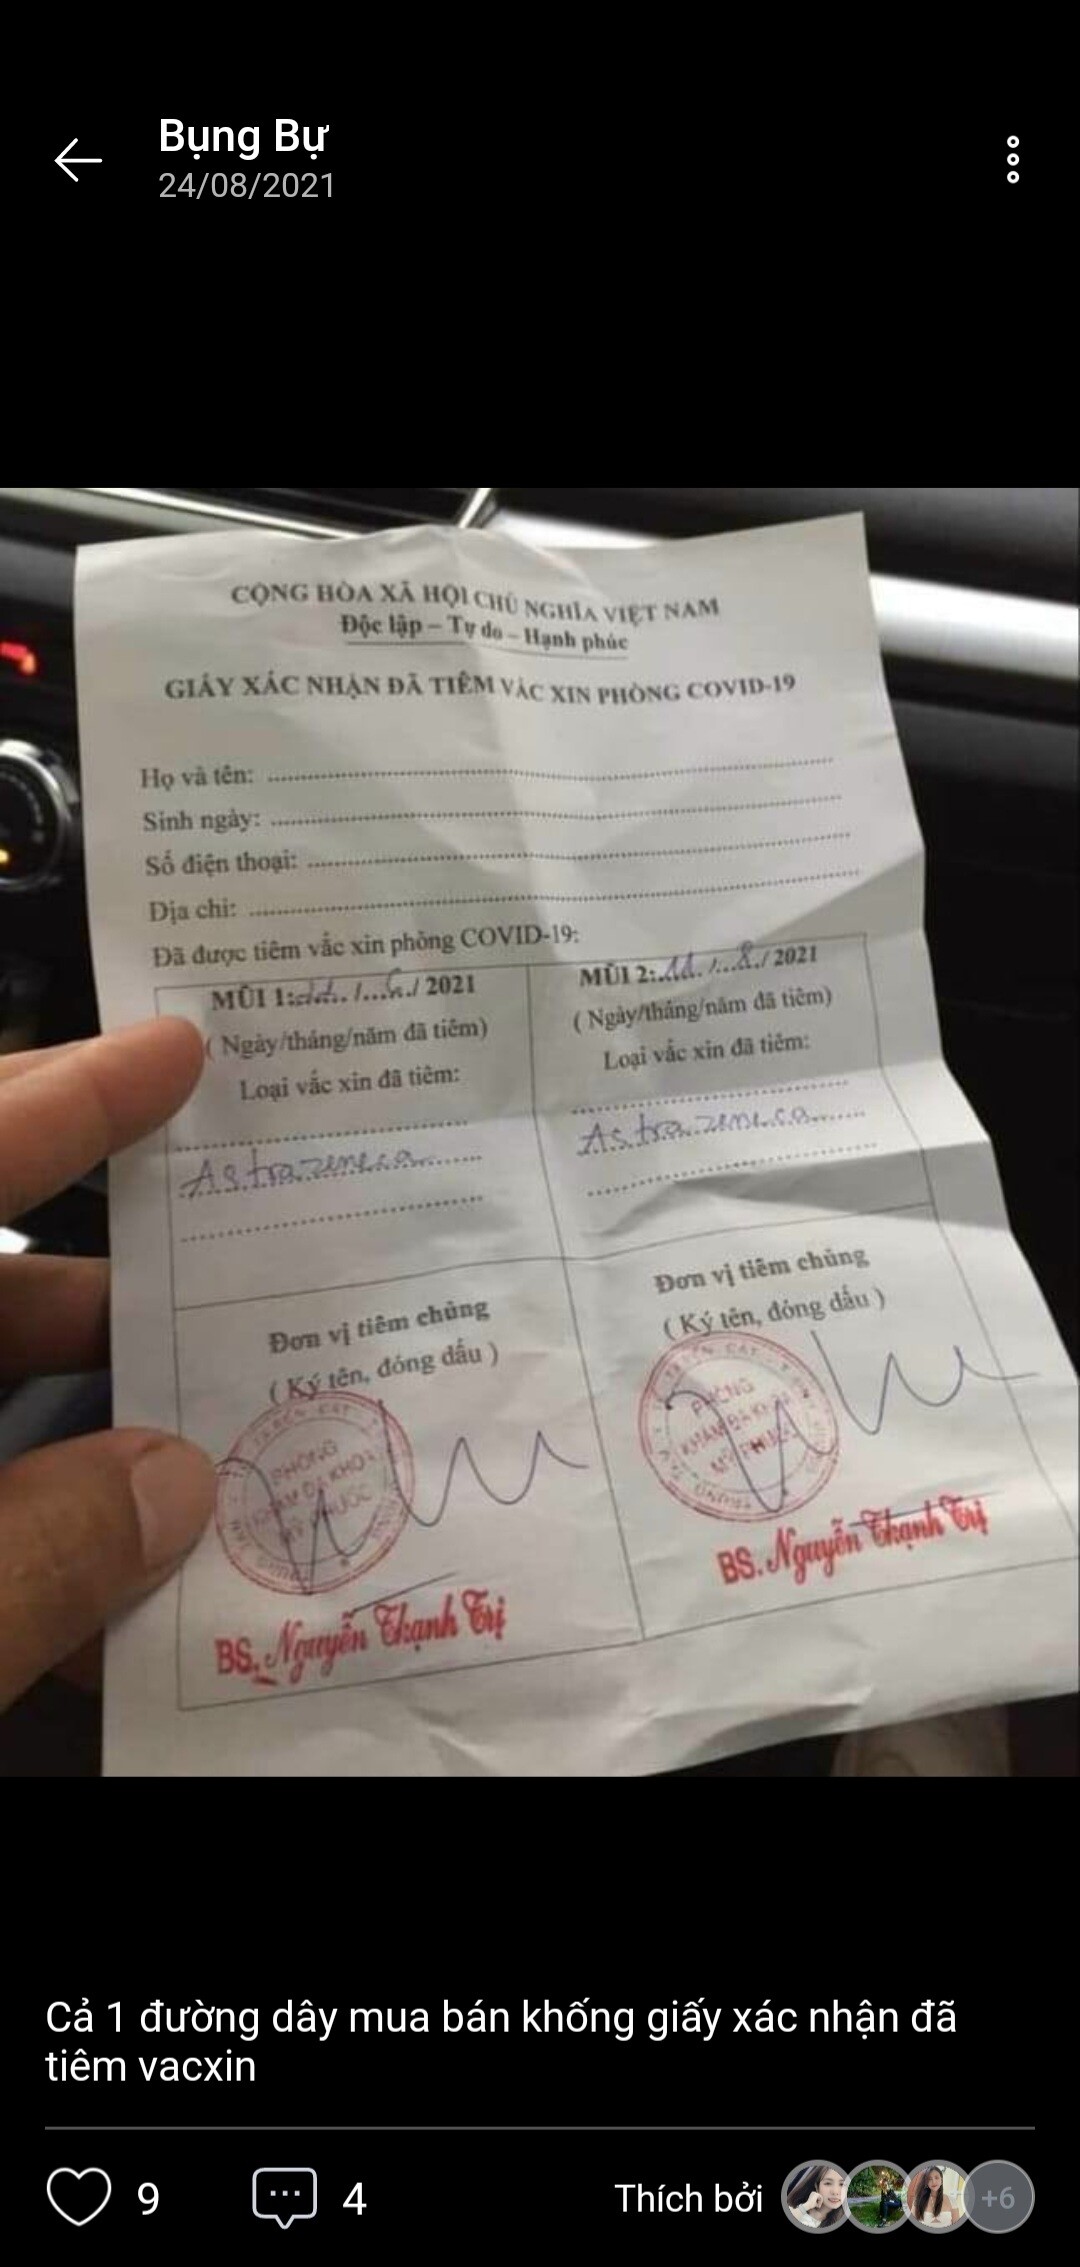 Bụng Bự
24/08/2021
CỘNG HÒA XÃ HỘI CHỦ NGHĨA VIỆT NAM
Độc lập – Tự do – Hạnh phúc
GIẤY XÁC NHẬN ĐÃ TIÊM VẮC XIN PHÒNG COVID-19
Họ và tên:
Sinh ngày:
Số điện thoại:
Địa chỉ:
Đã được tiêm vắc xin phòng COVID-19:
MŨI 1: / / 2021
(Ngày/tháng/năm đã tiêm)
Loại vắc xin đã tiêm:
Astrazeneca
Đơn vị tiêm chủng
(Ký tên, đóng dấu)
PHÒNG
KHÁM ĐA KHOA
MỸ PHƯỚC
BS. Nguyễn Thạnh Trị
MŨI 2: 11 / 8 / 2021
(Ngày/tháng/năm đã tiêm)
Loại vắc xin đã tiêm:
Astrazeneca
Đơn vị tiêm chủng
(Ký tên, đóng dấu)
PHÒNG
KHÁM ĐA KHOA
MỸ PHƯỚC
BS. Nguyễn Thạnh Trị
Cả 1 đường dây mua bán khống giấy xác nhận đã
tiêm vacxin
9
4
Thích bởi
+6